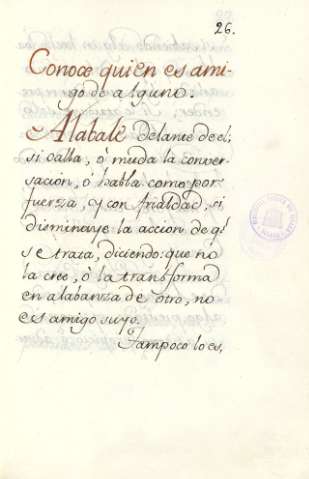 26.
Conoce quien es ami-
go de alguno.
Alabale delante de el;
si calla, ó muda la conver-
sación, ó habla como por
fuerza, y con frialdad, si
disminuye la accion de q.e
se trata, diciendo: que no
la cree, ó la transforma
en alabanza de otro, no
es amigo suyo.
Tampoco lo es,